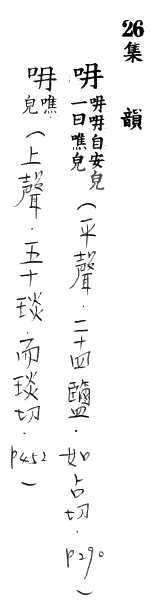 26集 韻
呥 呥呥自安皃一曰噍皃（平聲．二十四鹽．如占切．p290）
呥 噍皃（上聲．五十琰．而琰切．p452）